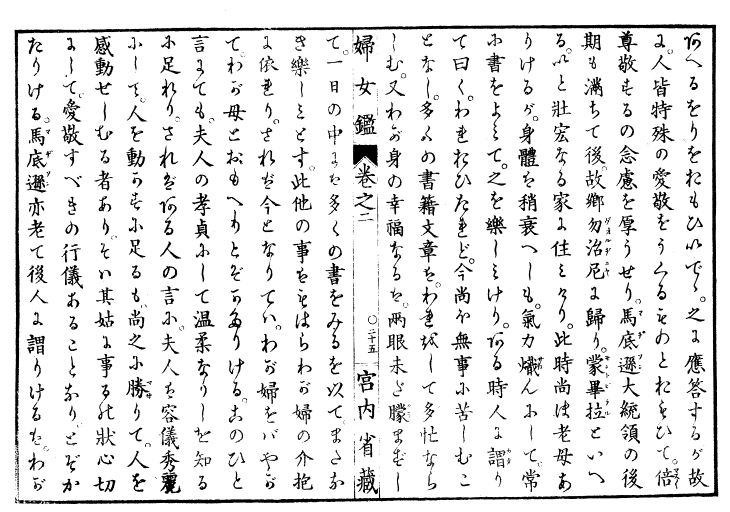 あへるをりをおもひいでゝ。之に應答するが故
に。人皆特殊の愛敬をうくるものとおもひて。倍
尊敬するの念慮を厚うせり。馬底遜大統領の後
期も滿ちて後。故鄕勿治尼に歸り。蒙畢拉といへ
る。いと壯宏なる家に住みたり。此時尚ほ老母あ
りけるが。身體も稍衰へしも。氣力熾んにして。常
に書をよみて。之を樂しみけり。ある時人に謂り
て曰く。われおひたれど。今尚ほ無事に苦しむこ
となし。多くの書籍文章は。われをして多忙なら
しむ。又わが身の幸福なるは。兩眼未だ朦まずし
婦女鑑 卷之二 ○二十五 宮内省藏
て。一日の中にも多くの書をみるを以てまさな
き樂しみとす。此他の事はもはらわが婦の介抱
に依れり。されば今となりては。わが婦をばやが
てわが母とおもへりとぞかたりける。このひと
言にても。夫人の孝貞にして温柔なりしを知る
に足れり。さればある人の言に。夫人は容儀秀麗
にして。人を動かすに足るも。尚之に勝りて。人を
感動せしむる者あり。そは其姑に事る狀心切
にして。愛敬すべきの行儀あることなり。とぞか
たりける。馬底遜亦老て後人に謂りけるは。わが